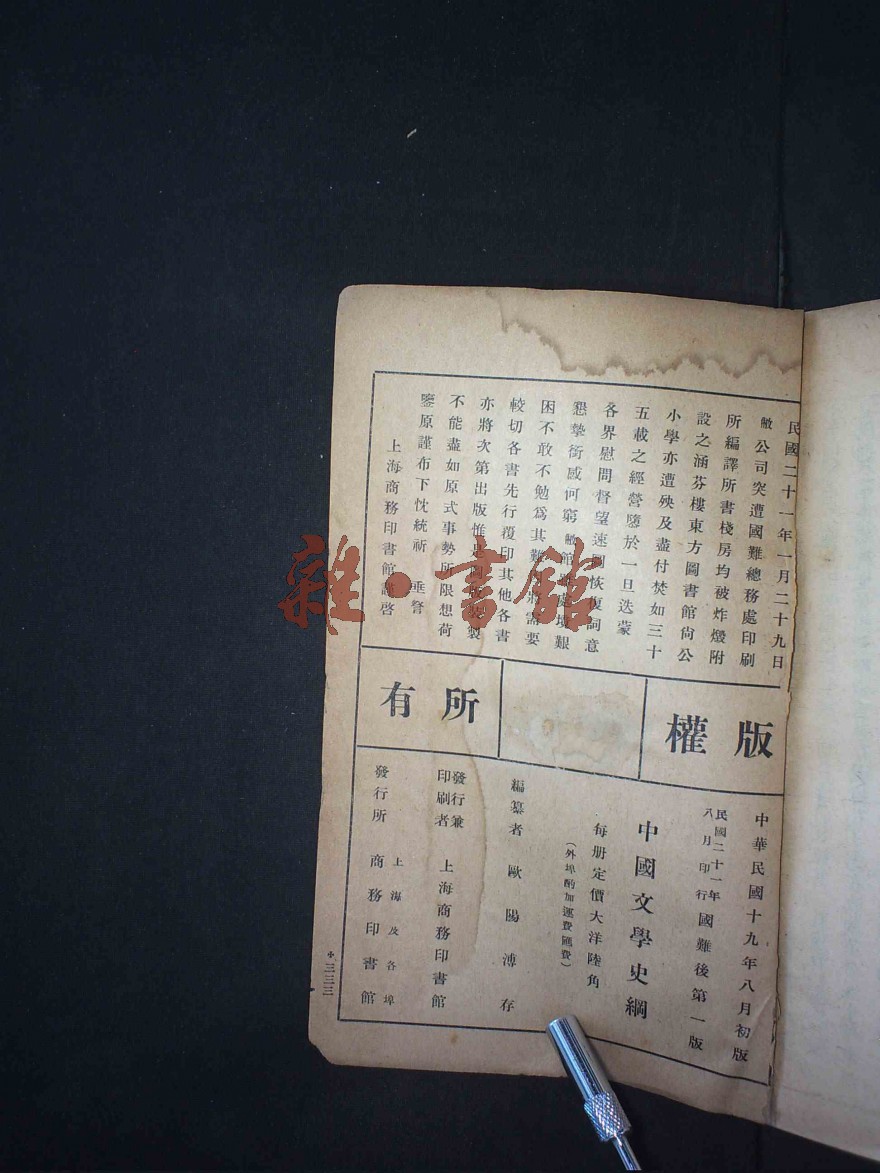 民國二十一年一月二十九日
敝公司突遭國難總務處印刷
所編譯所書棧房均被炸燬附
設之涵芬樓東方圖書館尙公
小學亦遭殃及盡付焚如三十
五載之經營隳於一旦迭蒙
各界慰問督望速圖恢復詞意
懇摯銜感何窮敝館處境艱
困不敢不勉爲其難將需要
較切各書先行覆印其他各書
亦將次第出版惟製
不能盡如原式事勢所限想荷
鑒原謹布下忱統祈 垂詧
上海商務印書館謹啓
版權
所有
中華民國十九年八月初版
民國二十一年八月印行 國難後第一版
中國文學史綱
每册定價大洋陸角
(外埠酌加運費匯費)
編纂者 歐陽溥存
發行兼印刷者 上海商務印書館
發行所 上海及各埠 商務印書館
三三三
雜·書館